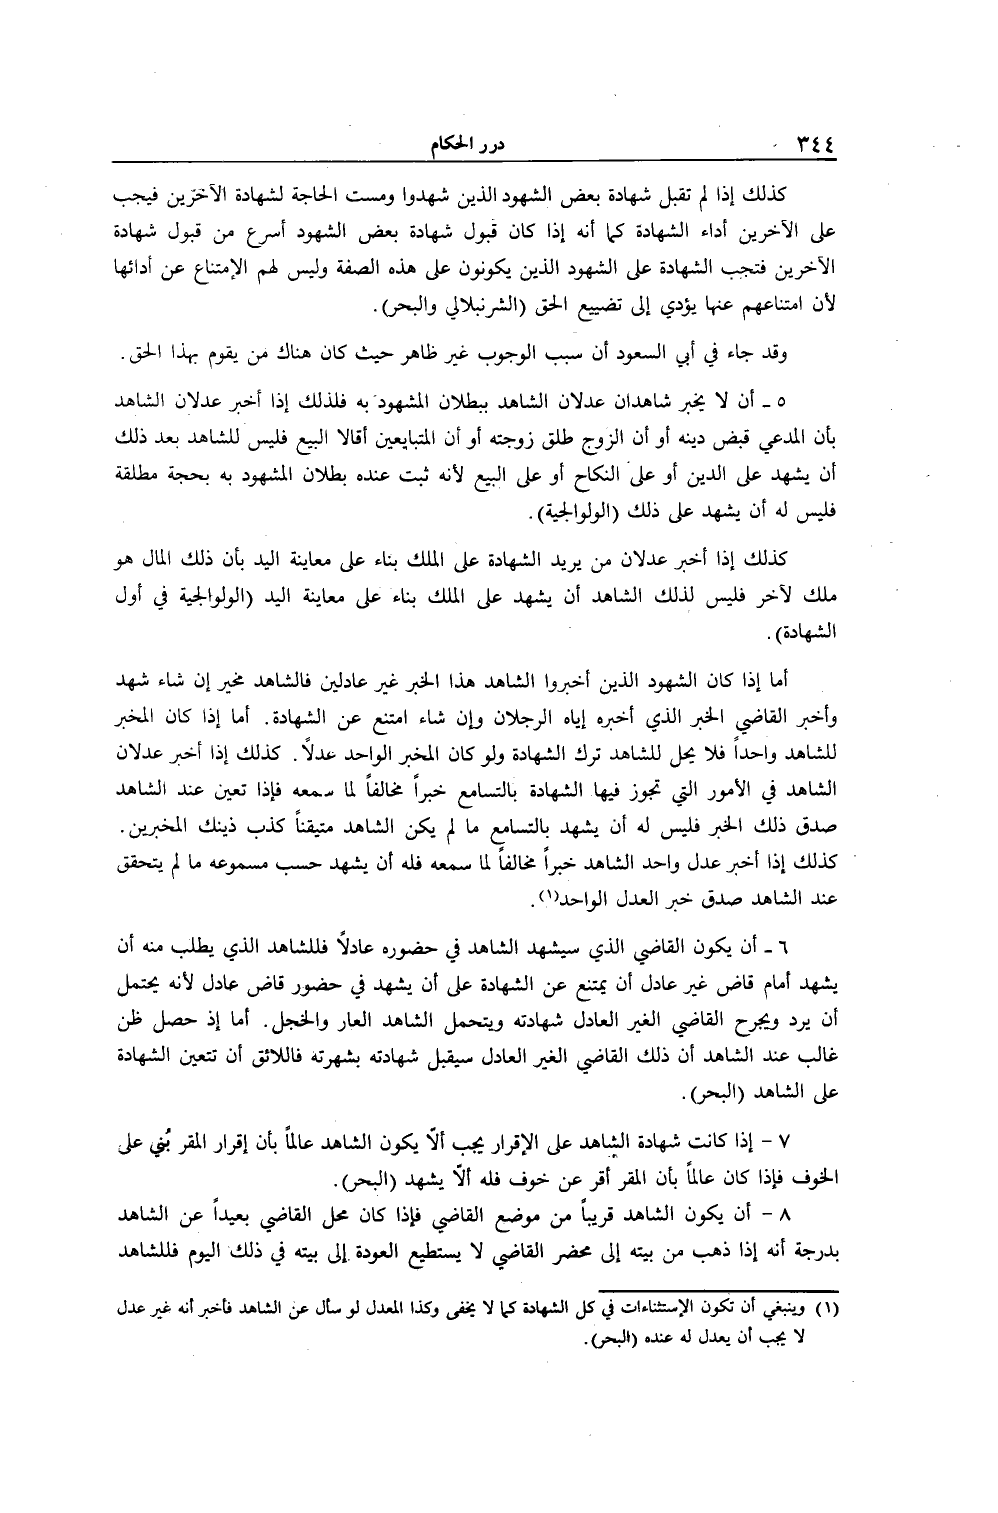 ٣٤٤
درر الحكام
كذلك إذا لم تقبل شهادة بعض الشهود الذين شهدوا ومست الحاجة لشهادة الآخرين فيجب
على الآخرين أداء الشهادة كما أنه إذا كان قبول شهادة بعض الشهود أسرع من قبول شهادة
الآخرين فتجب الشهادة على الشهود الذين يكونون على هذه الصفة وليس لهم الإمتناع عن أدائها
لأن امتناعهم عنها يؤدي إلى تضييع الحق (الشرنبلالي والبحر).
وقد جاء في أبي السعود أن سبب الوجوب غير ظاهر حيث كان هناك من يقوم بهذا الحق.
٥ - أن لا يخبر شاهدان عدلان الشاهد ببطلان المشهود به فلذلك إذا أخبر عدلان الشاهد
بأن المدعي قبض دينه أو أن الزوج طلق زوجته أو أن المتبايعين أقالا البيع فليس للشاهد بعد ذلك
أن يشهد على الدين أو على النكاح أو على البيع لأنه ثبت عنده بطلان المشهود به بحجة مطلقة
فليس له أن يشهد على ذلك (الولوالجية).
كذلك إذا أخبر عدلان من يريد الشهادة على الملك بناء على معاينة اليد بأن ذلك المال هو
ملك لآخر فليس لذلك الشاهد أن يشهد على الملك بناء على معاينة اليد (الولوالجية في أول
الشهادة).
أما إذا كان الشهود الذين أخبروا الشاهد هذا الخبر غير عادلين فالشاهد مخير إن شاء شهد
وأخبر القاضي الخبر الذي أخبره إياه الرجلان وإن شاء امتنع عن الشهادة. أما إذا كان المخبر
للشاهد واحداً فلا يحل للشاهد ترك الشهادة ولو كان المخبر الواحد عدلاً. كذلك إذا أخبر عدلان
الشاهد في الأمور التي تجوز فيها الشهادة بالتسامع خبراً مخالفاً لما سمعه فإذا تعين عند الشاهد
صدق ذلك الخبر فليس له أن يشهد بالتسامع ما لم يكن الشاهد متيقناً كذب ذينك المخبرين.
كذلك إذا أخبر عدل واحد الشاهد خبراً مخالفاً لما سمعه فله أن يشهد حسب مسموعه ما لم يتحقق
عند الشاهد صدق خبر العدل الواحد(١).
٦ - أن يكون القاضي الذي سيشهد الشاهد في حضوره عادلاً فللشاهد الذي يطلب منه أن
يشهد أمام قاض غير عادل أن يمتنع عن الشهادة على أن يشهد في حضور قاض عادل لأنه يحتمل
أن يرد ويجرح القاضي الغير العادل شهادته ويتحمل الشاهد العار والخجل. أما إذ حصل ظن
غالب عند الشاهد أن ذلك القاضي الغير العادل سيقبل شهادته بشهرته فاللائق أن تتعين الشهادة
على الشاهد (البحر).
٧ - إذا كانت شهادة الشاهد على الإقرار يجب ألّا يكون الشاهد عالماً بأن إقرار المقر بُني على
الخوف فإذا كان عالماً بأن المقر أقر عن خوف فله ألّا يشهد (البحر).
٨ - أن يكون الشاهد قريباً من موضع القاضي فإذا كان محل القاضي بعيداً عن الشاهد
بدرجة أنه إذا ذهب من بيته إلى محضر القاضي لا يستطيع العودة إلى بيته في ذلك اليوم فللشاهد
(١) وينبغي أن تكون الإستثناءات في كل الشهادة كما لا يخفى وكذا المعدل لو سأل عن الشاهد فأخبر أنه غير عدل
لا يجب أن يعدل له عنده (البحر).